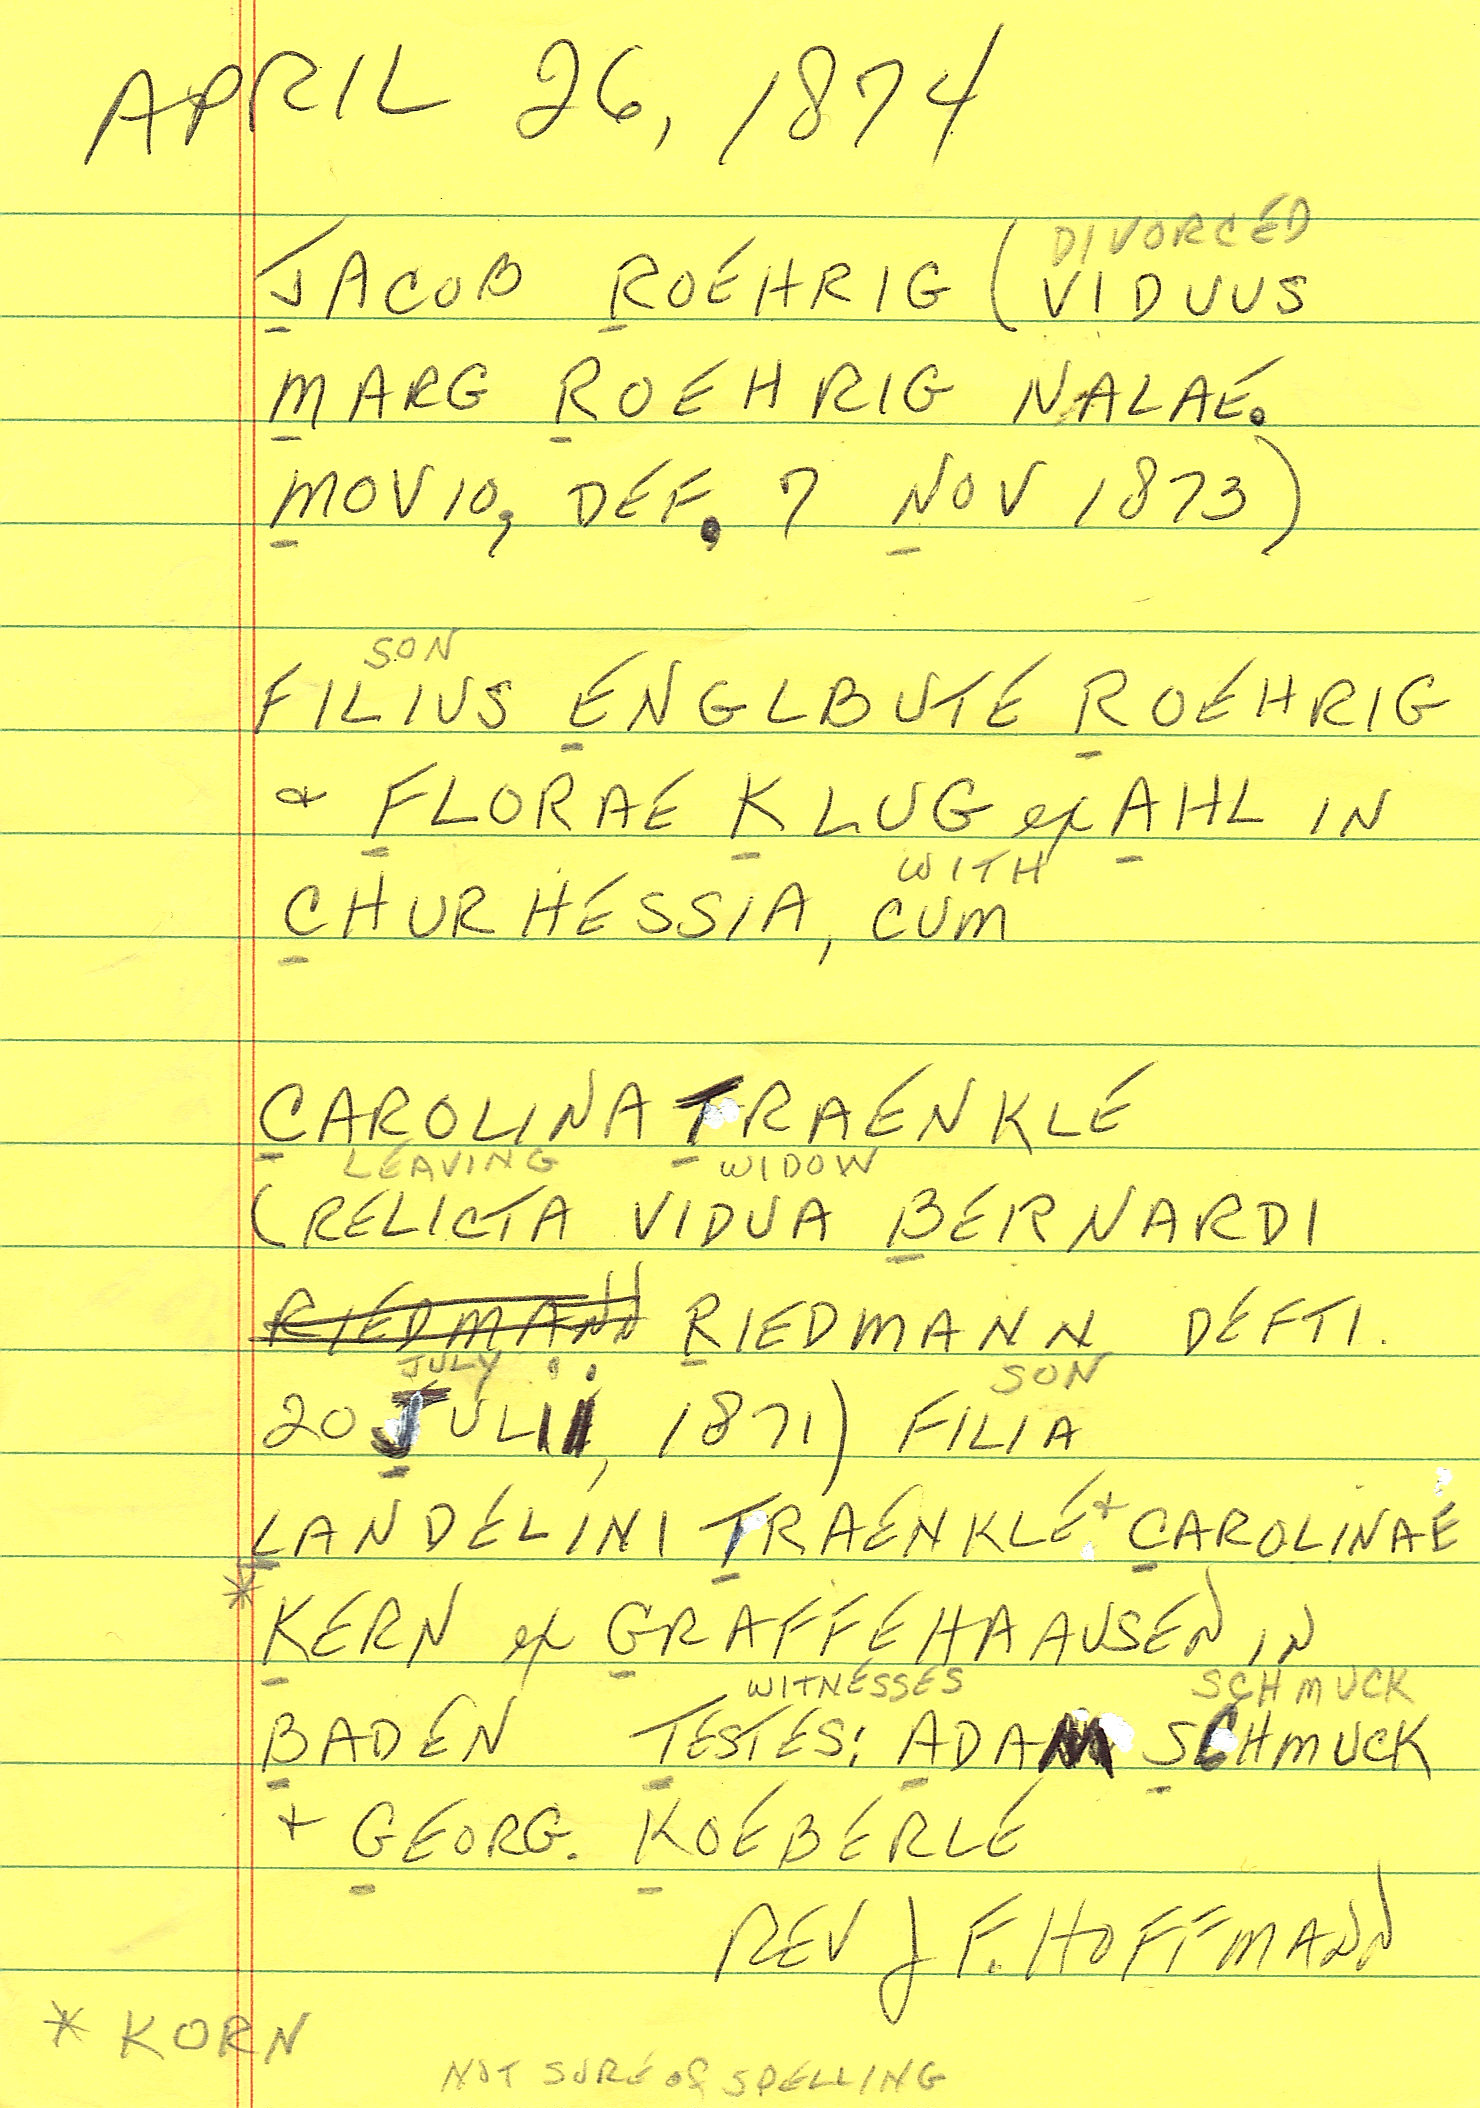 APRIL 26, 1874
DIVORCED
JACOB ROEHRIG (VIDUUS
MARG ROEHRIG NALAE.
MOVIO, DEF. 7 NOV 1873)
SON
FILIUS ENGLBUTE ROEHRIG
+ FLORAE KLUG ex AHL IN
WITH
CHURHESSIA, CUM
CAROLINA TRAENKLE
LEAVING WIDOW
(RELICTA VIDUA BERNARDI
RIEDMANN RIEDMANN DEFTI.
JULY SON
20 JULII, 1871) FILIA
LANDELINI TRAENKLE + CAROLINAE
* KERN ex GRAFFEHAAUSEN IN
WITNESSES SCHMUCK
BADEN TESTES: ADAM SCHMUCK
+ GEORG. KOEBERLE
REV J F. HOFFMANN
* KORN
NOT SURE of SPELLING